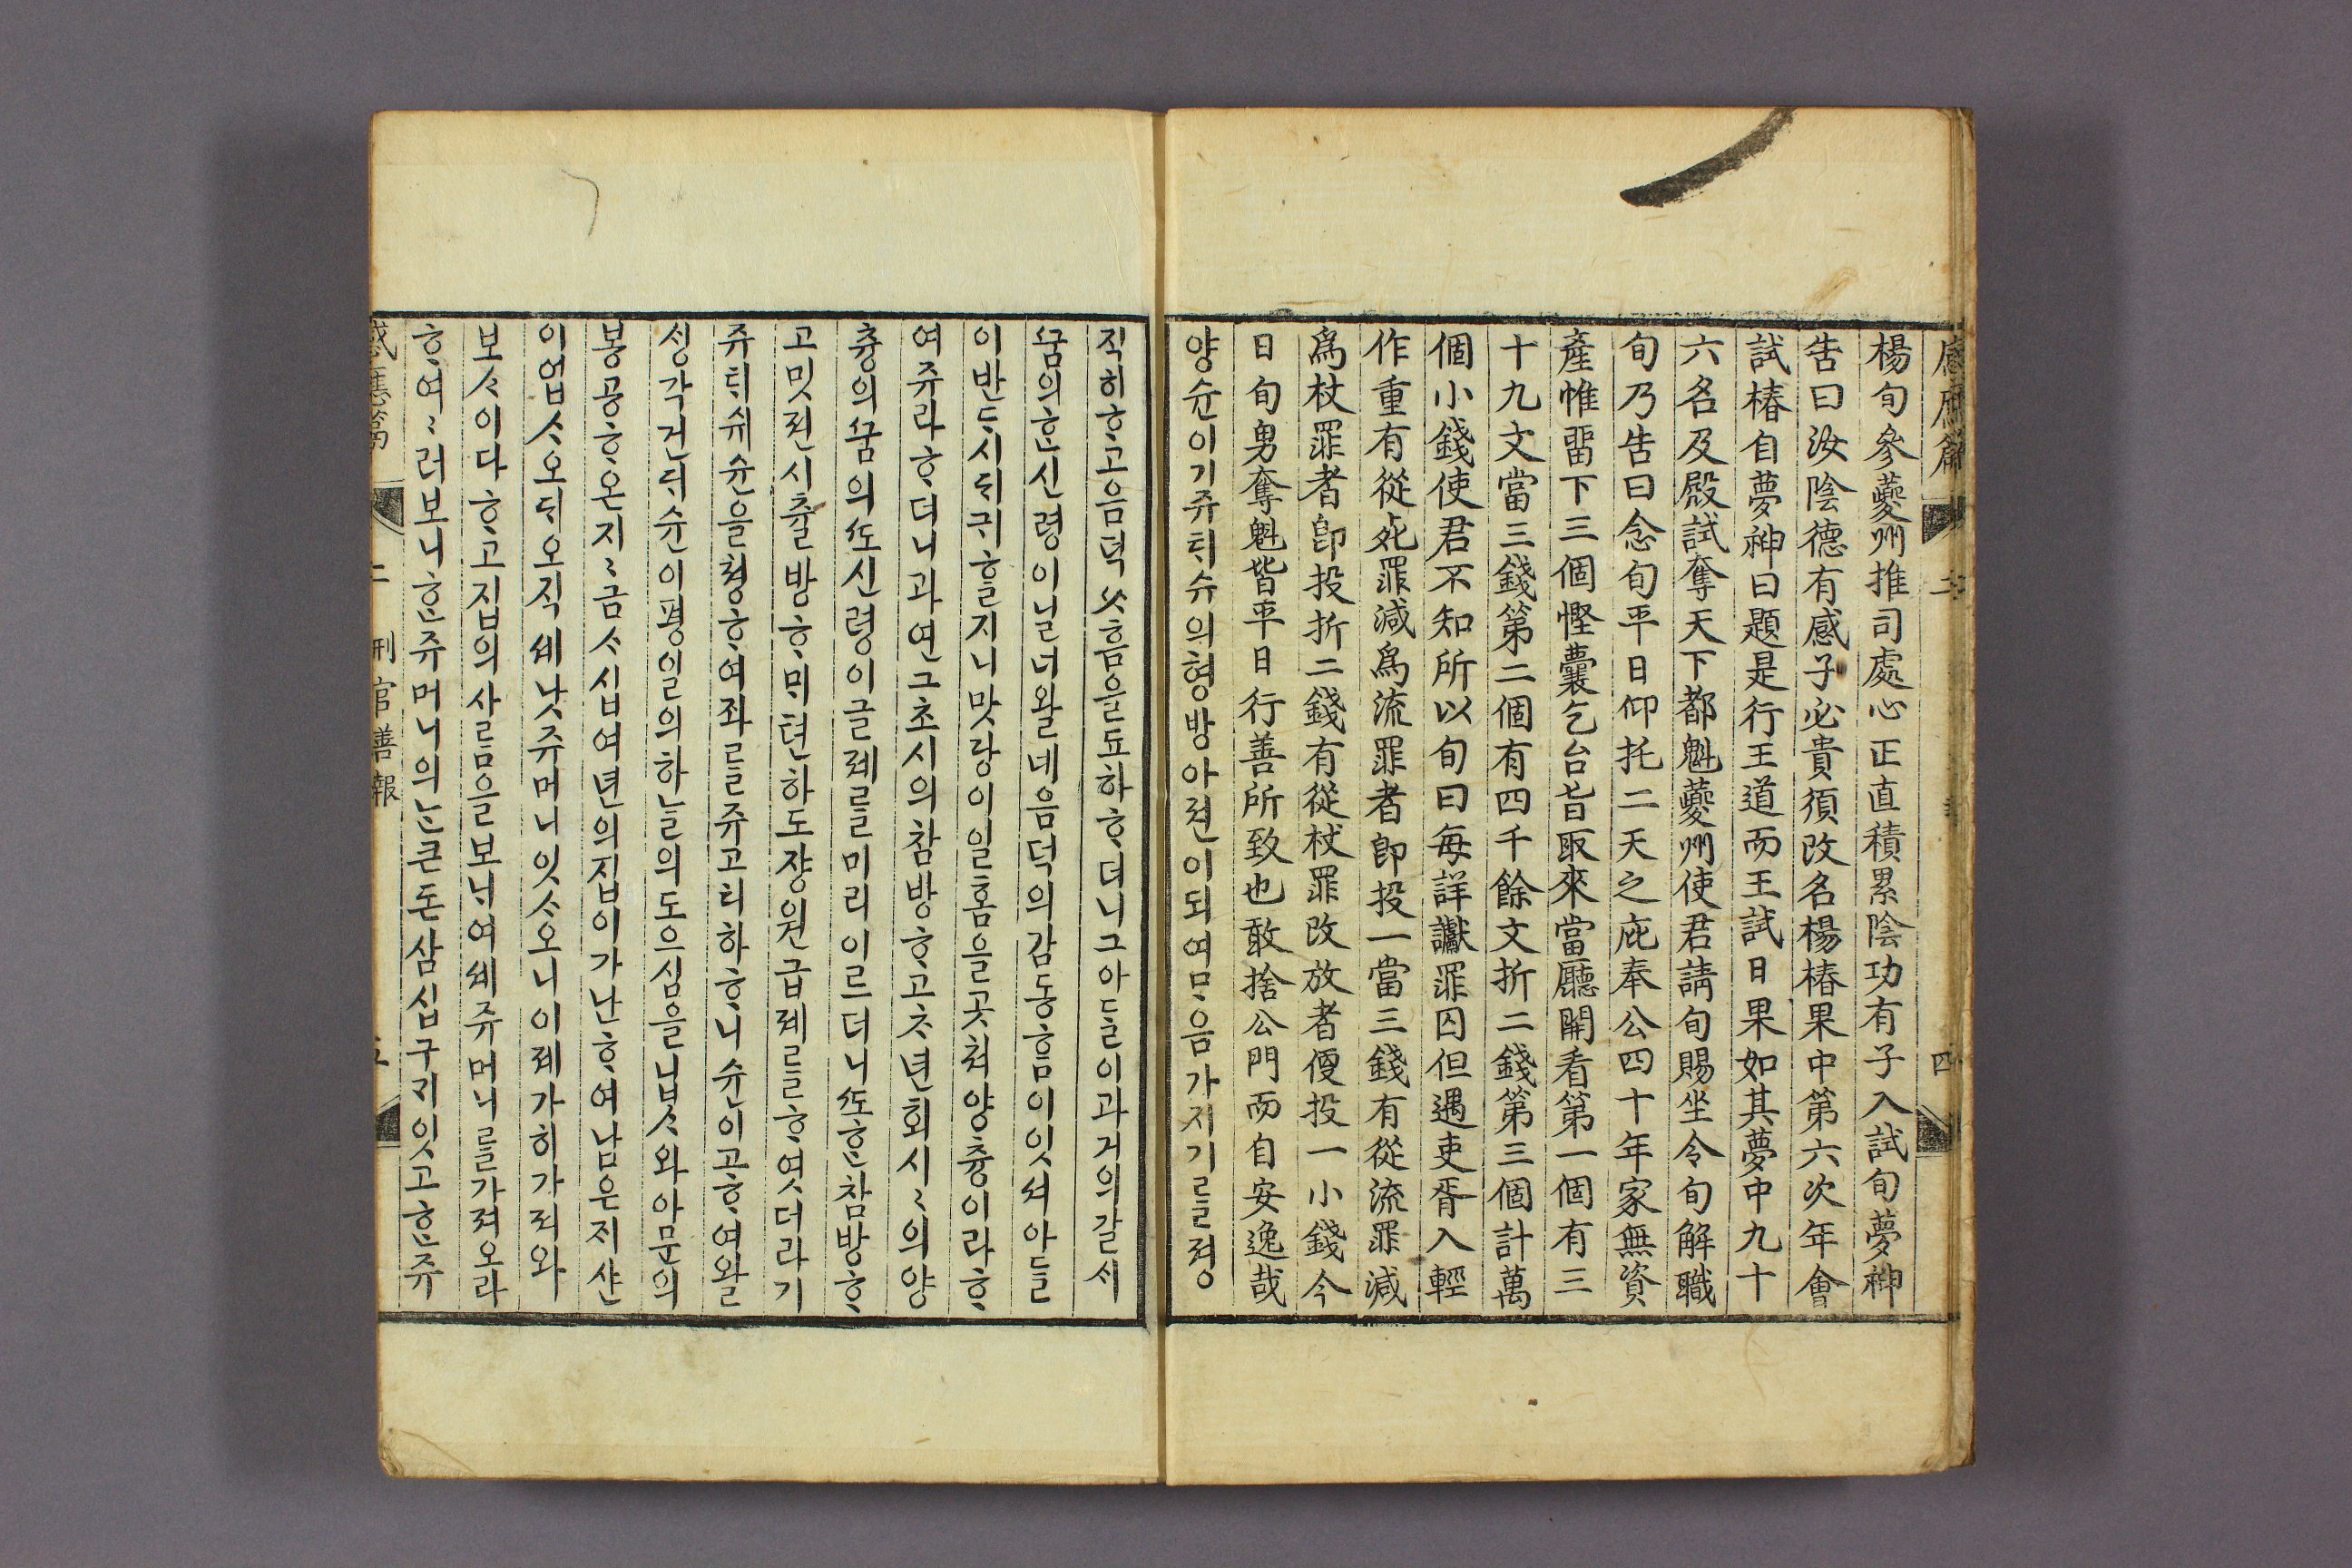 楊旬參夔州推司處心正直積累陰功有子入試旬夢神
告曰汝陰德有感子必貴須改名楊椿果中第六次年會
試椿自夢神曰題是行王道而王試日果如其夢中九十
六名及殿試奪天下都魁夔州使君請旬賜坐令旬解職
旬乃告曰念旬平日仰托二天之庇奉公四十年家無資
產惟畱下三個慳囊乞台旨取來當廳開看第一個有三
十九文當三錢第二個有四千餘文折二錢第三個計萬
個小錢使君不知所以旬曰每詳讞罪囚但遇吏胥入輕
作重有從死罪減爲流罪者卽投一當三錢有從流罪減
爲杖罪者卽投折二錢有從杖罪改放者便投一小錢今
日旬男奪魁皆平日行善所致也敢捨公門而自安逸哉
양슌이기쥬ᄐᆡ슈의형방아젼이되여ᄆᆞ음가지기ᄅᆞᆯ졍
직히ᄒᆞ고음덕ᄡᆞ흠을됴하ᄒᆞ더니그아ᄃᆞᆯ이과거의갈ᄉᆡ
ᄭᅮᆷ의ᄒᆞᆫ신령이닐너왈네음덕의감동ᄒᆞᆷ이잇셔아ᄃᆞᆯ
이반ᄃᆞ시ᄃᆡ귀ᄒᆞᆯ지니맛당이일홈을곳쳐양츙이라ᄒᆞ
여쥬라ᄒᆞ더니과연그초시의참방ᄒᆞ고ᄎᆞ년회시〻의양
츙의ᄭᅮᆷ의ᄯᅩ신령이글졔ᄅᆞᆯ미리이르더니ᄯᅩᄒᆞᆫ참방ᄒᆞ
고밋젼시츌방ᄒᆞᄆᆡ텬하도쟝원급졔ᄅᆞᆯᄒᆞ엿더라기
쥬ᄐᆡ쉬슌을쳥ᄒᆞ여좌ᄅᆞᆯ쥬고치하ᄒᆞ니슌이고ᄒᆞ여왈
ᄉᆡᆼ각건ᄃᆡ슌이평일의하ᄂᆞᆯ의도으심을닙ᄉᆞ와아문의
봉공ᄒᆞ온지〻금ᄉᆞ십여년의집이가난ᄒᆞ여남은ᄌᆡ샨
이업ᄉᆞ오ᄃᆡ오직세낫쥬머니잇ᄉᆞ오니이졔가히가져와
보ᄉᆞ이다ᄒᆞ고집의사ᄅᆞᆷ을보ᄂᆡ여세쥬머니ᄅᆞᆯ가져오라
ᄒᆞ여〻러보니ᄒᆞᆫ쥬머니의ᄂᆞᆫ큰돈삼십구ᄀᆡ잇고ᄒᆞᆫ쥬
感應篇 二 刑官善報